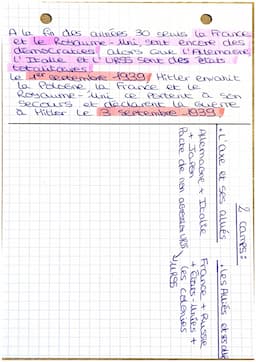 A la fin des années 30 seuls la France
et le Royaume-Uni, sont encore des
démocraties alors que l'Allemagne,
l'Italie et l'URSS sont des états
totalitaires
le 1er septembre 1939 Hitler envahit
la Pologne, la France et le
Royaume-Uni ce portent à son
secours et déclarent la guerre
à Hitler le 3 septembre 1939
2 camps:
• L'axe et ses alliés
Allemagne + Italie
+ Japon
Pacte de non agression
URSS
• Les Alliés
France + Russie
+ États-Unies +
les colonies